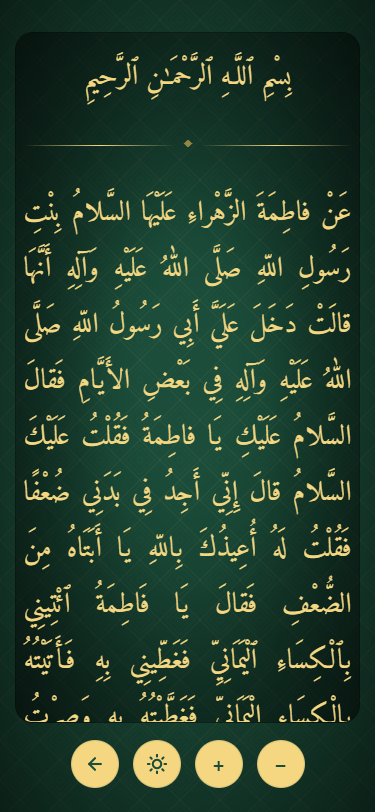 بِسْمِ ٱللَّـهِ ٱلرَّحْمَـٰنِ ٱلرَّحِيمِ
عَنْ فاطِمَةَ الزَّهْراءِ عَلَيْهَا السَّلامُ بِنْتِ
رَسُولِ اللّهِ صَلَّى اللّهُ عَلَيْهِ وَآلِهِ أَنَّهَا
قالَتْ دَخَلَ عَلَيَّ أَبِي رَسُولُ اللّهِ صَلَّى
اللّهُ عَلَيْهِ وَآلِهِ فِي بَعْضِ الأَيَّامِ فَقالَ
السَّلامُ عَلَيْكِ يَا فاطِمَةُ فَقُلْتُ عَلَيْكَ
السَّلامُ قالَ إِنِّي أَجِدُ فِي بَدَنِي ضُعْفًا
فَقُلْتُ لَهُ أُعِيذُكَ بِاللّهِ يَا أَبَتَاهُ مِنَ
الضُّعْفِ فَقَالَ يَا فَاطِمَةُ ٱئْتِينِي
بِٱلْكِسَاءِ ٱلْيَمَانِيِّ فَغَطِّينِي بِهِ فَأَتَيْتُهُ
بِالْكِسَاءِ الْيَمَانِيِّ فَغَطَّيْتُهُ بِهِ وَصِرْتُ
+
−